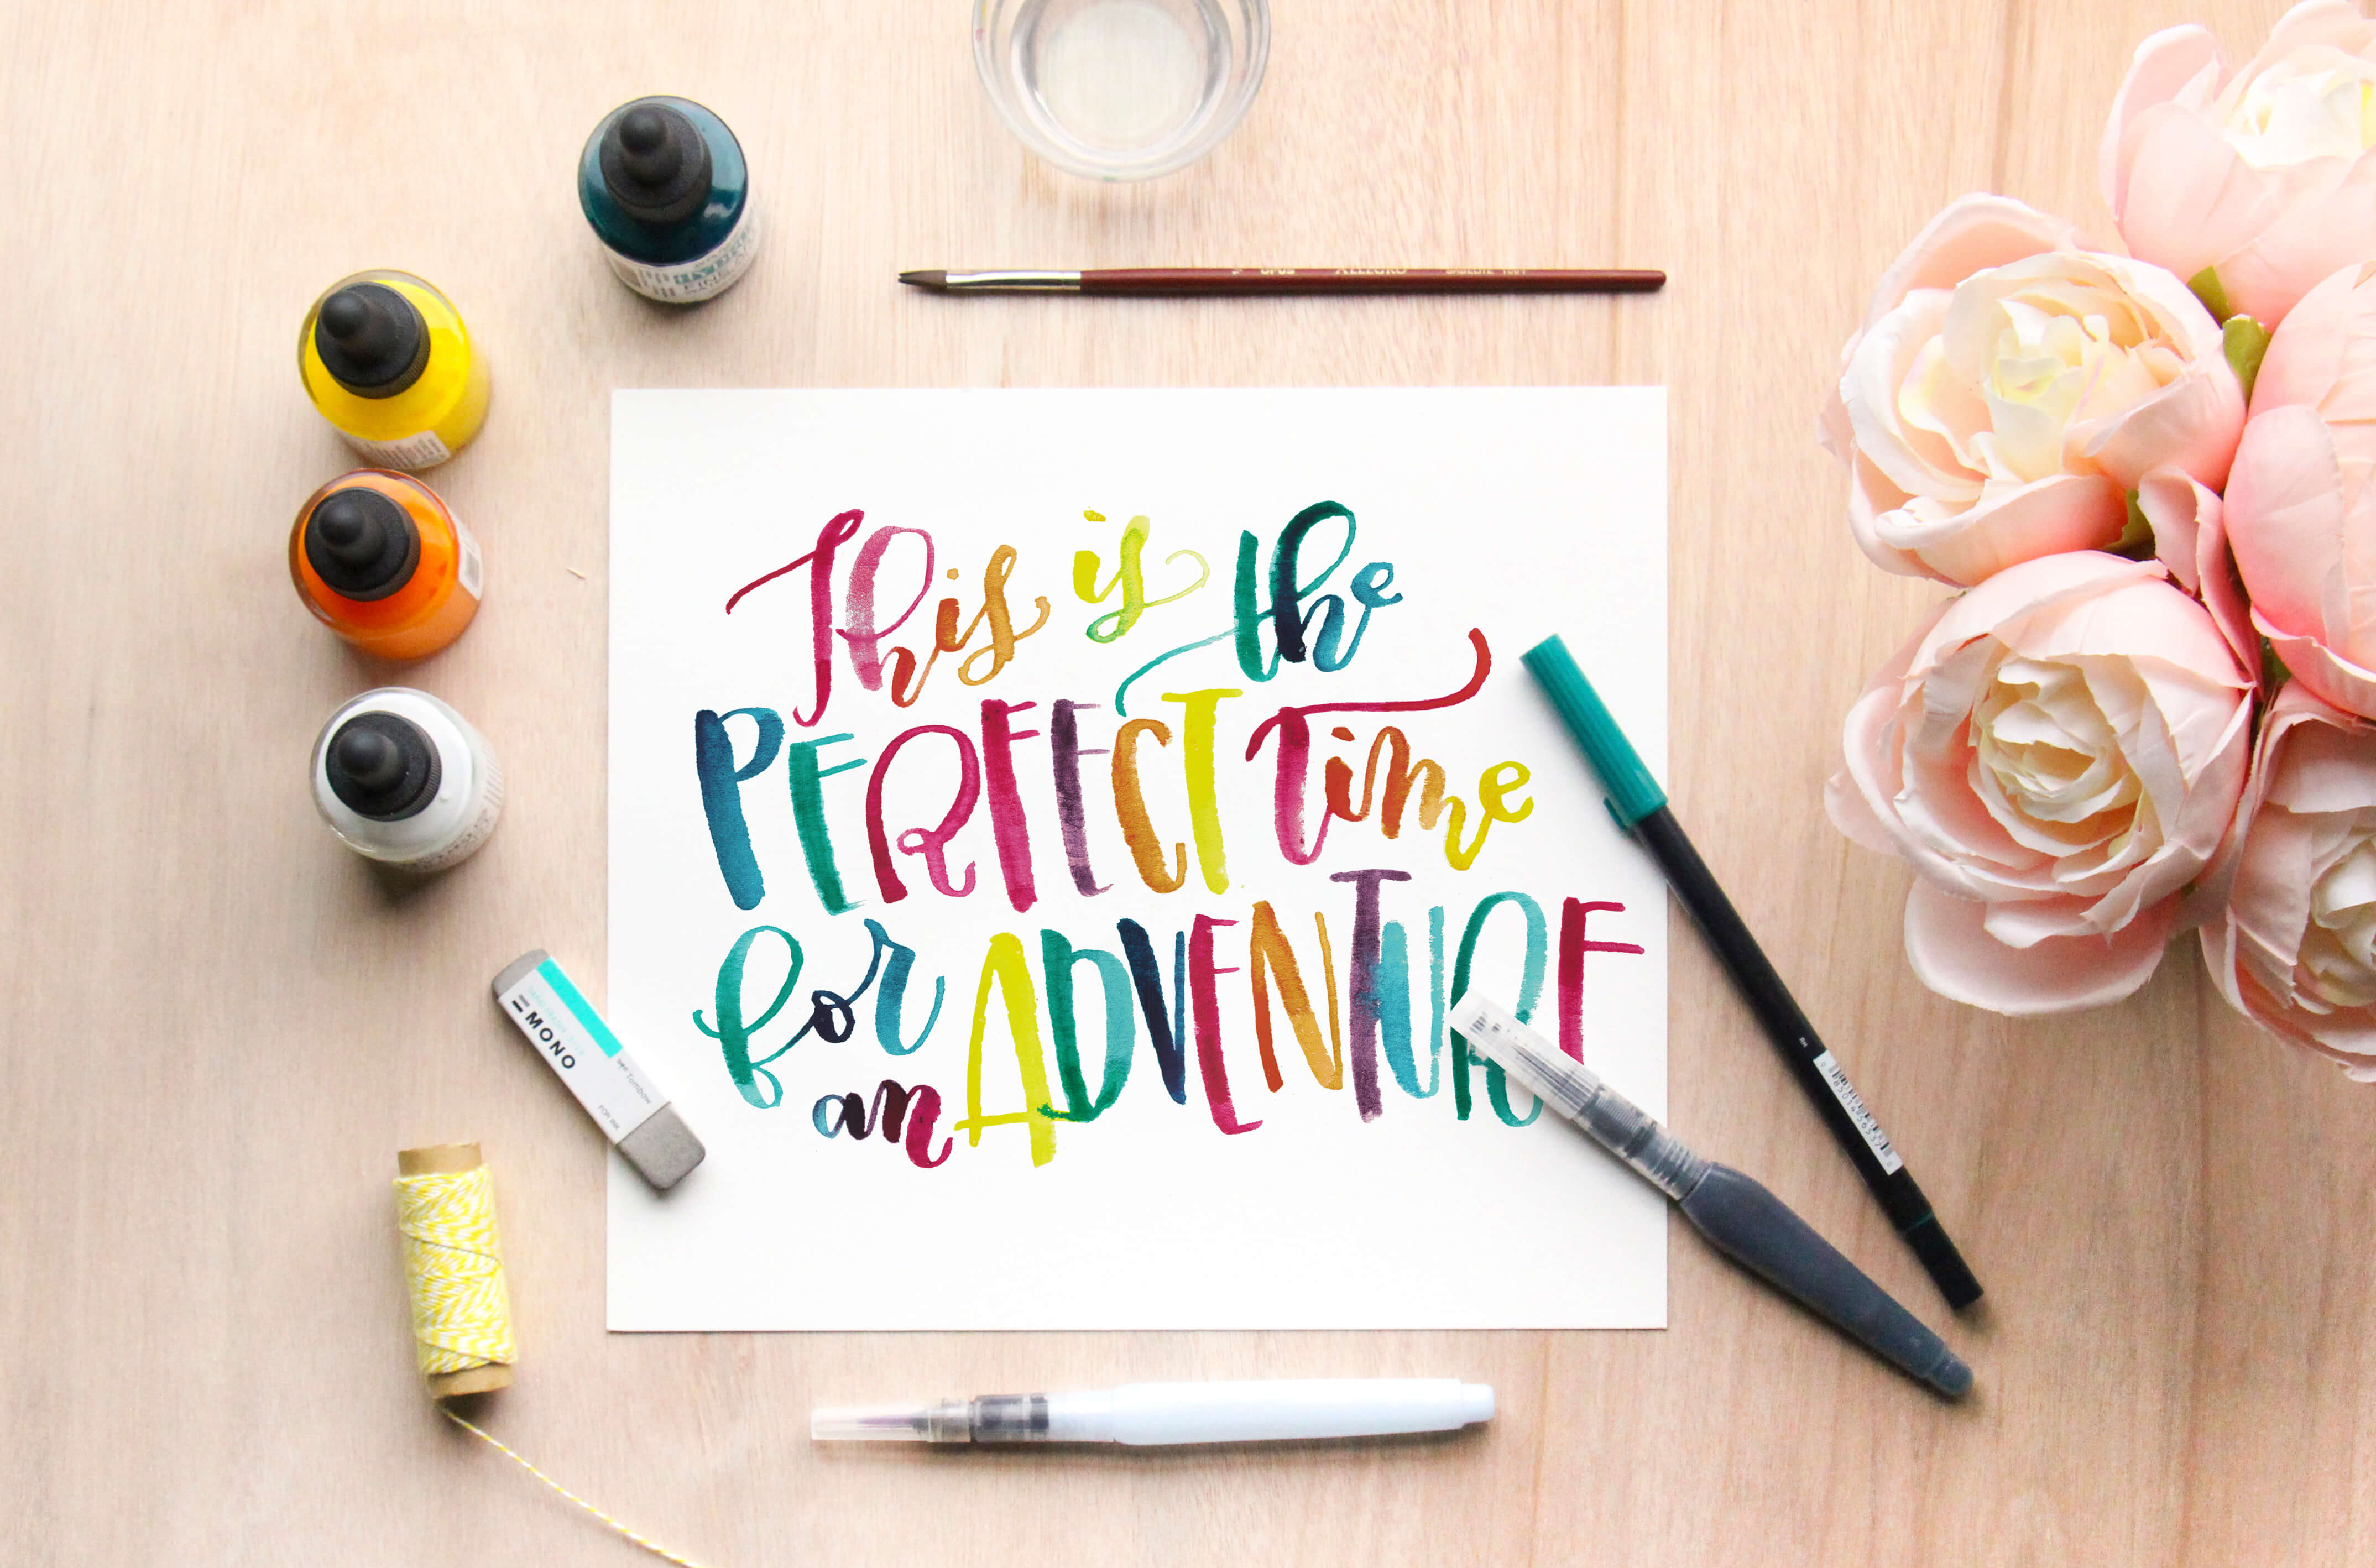 This is the
PERFECT time
for an ADVENTURE
MONO
Tombow
FOR INK
opus ALLEGRO